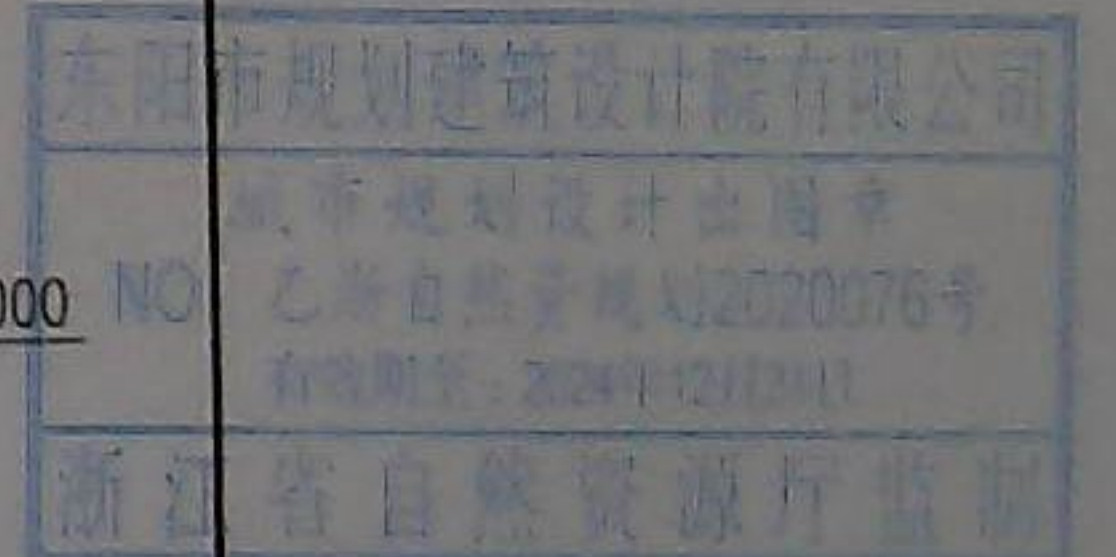 东阳市规划建筑设计院有限公司
城市规划设计出图章
000
NO 乙浙自然资规划2020076号
有效期至：2024年12月
浙江省自然资源厅监制